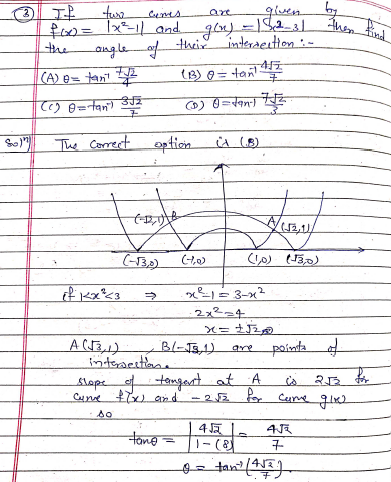 ③ If two curves are given by
f(x) = |x²-1| and g(x) = |x²-3| then find
the angle of their intersection :-
(A) θ = tan⁻¹ 7√2/4 (B) θ = tan⁻¹ 4√2/7
(C) θ = tan⁻¹ 3√2/7 (D) θ = tan⁻¹ 7√2/3
Solⁿ) The correct option is (B)
(-√2,1) B A (√2,1)
(-√3,0) (-1,0) (1,0) (√3,0)
if 1<x²<3 ⇒ x²-1 = 3-x²
2x² = 4
x = ±√2
A(√3,1), B(-√2,1) are points of
intersection.
slope of tangent at A is 2√2 for
curve f(x) and -2√2 for curve g(x)
so
tanθ = |4√2/1-(8)| = 4√2/7
θ = tan⁻¹(4√2/7).